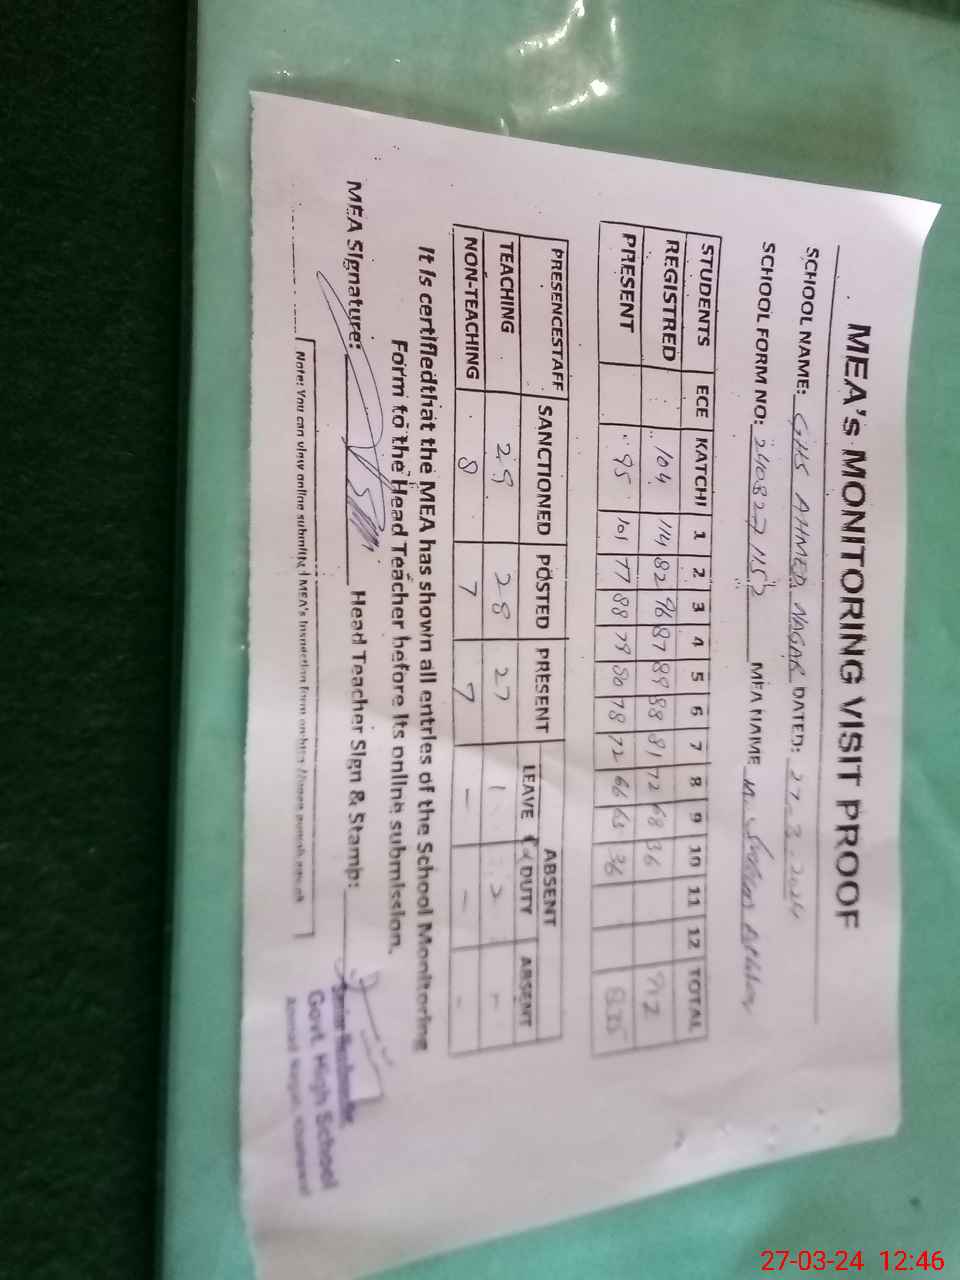 MEA's MONITORING VISIT PROOF
SCHOOL NAME: GHS AHMED NAGAR DATED: 27-3-2024
SCHOOL FORM NO: 240827 1152 MEA NAME
STUDENTS ECE KATCHI 1 2 3 4 5 6 7 8 9 10 11 12 TOTAL
REGISTRED 104 114 82 96 87 89 88 81 72 68 36 912
PRESENT 95 101 77 88 79 80 78 72 66 65 36 835
PRESENCESTAFF SANCTIONED POSTED PRESENT ABSENT
LEAVE DUTY ABSENT
TEACHING 29 28 27 1 - -
NON-TEACHING 8 7 7 - - -
It is certifiedthat the MEA has shown all entries of the School Monitoring
Form to the Head Teacher before its online submission.
MEA Signature: Head Teacher Sign & Stamb:
Senior Headmaster
Govt. High School
Ahmad Nagar,
Note: You can view online submitted MEA's Inspection form on
27-03-24 12:46